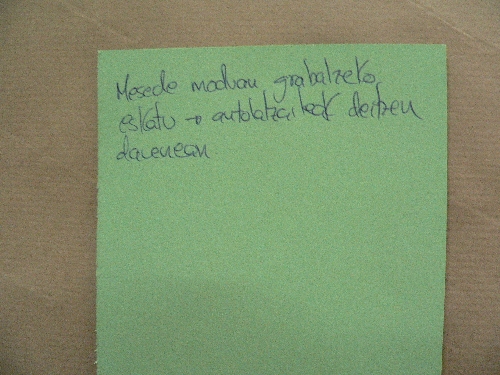 Mesede moduan grabatzeko,
eskatu → autolatzaileak deitzen
dauenean